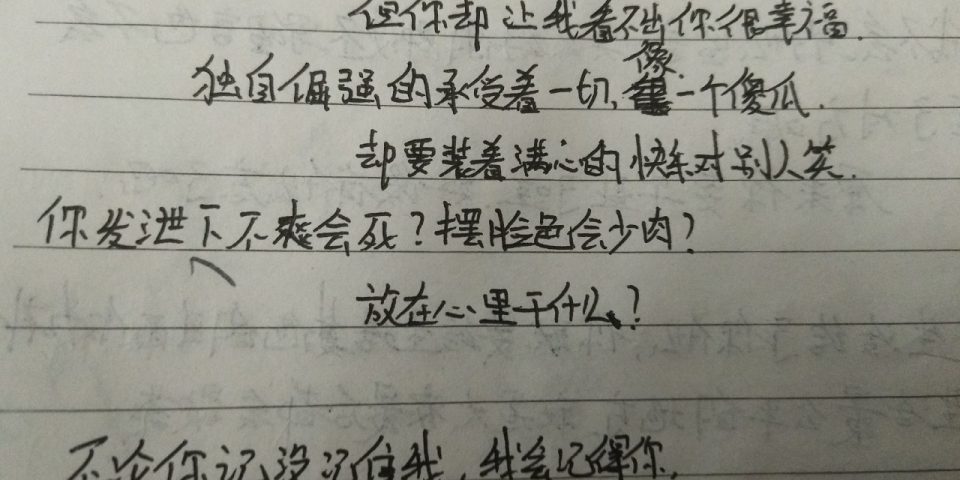 但你却让我看不出你很幸福.
独自倔强的承受着一切,像一个傻瓜.
却要装着满心的快乐对别人笑.
你发泄下不爽会死?摆脸色会少肉?
放在心里干什么?
不论你记没记住我,我会记得你.